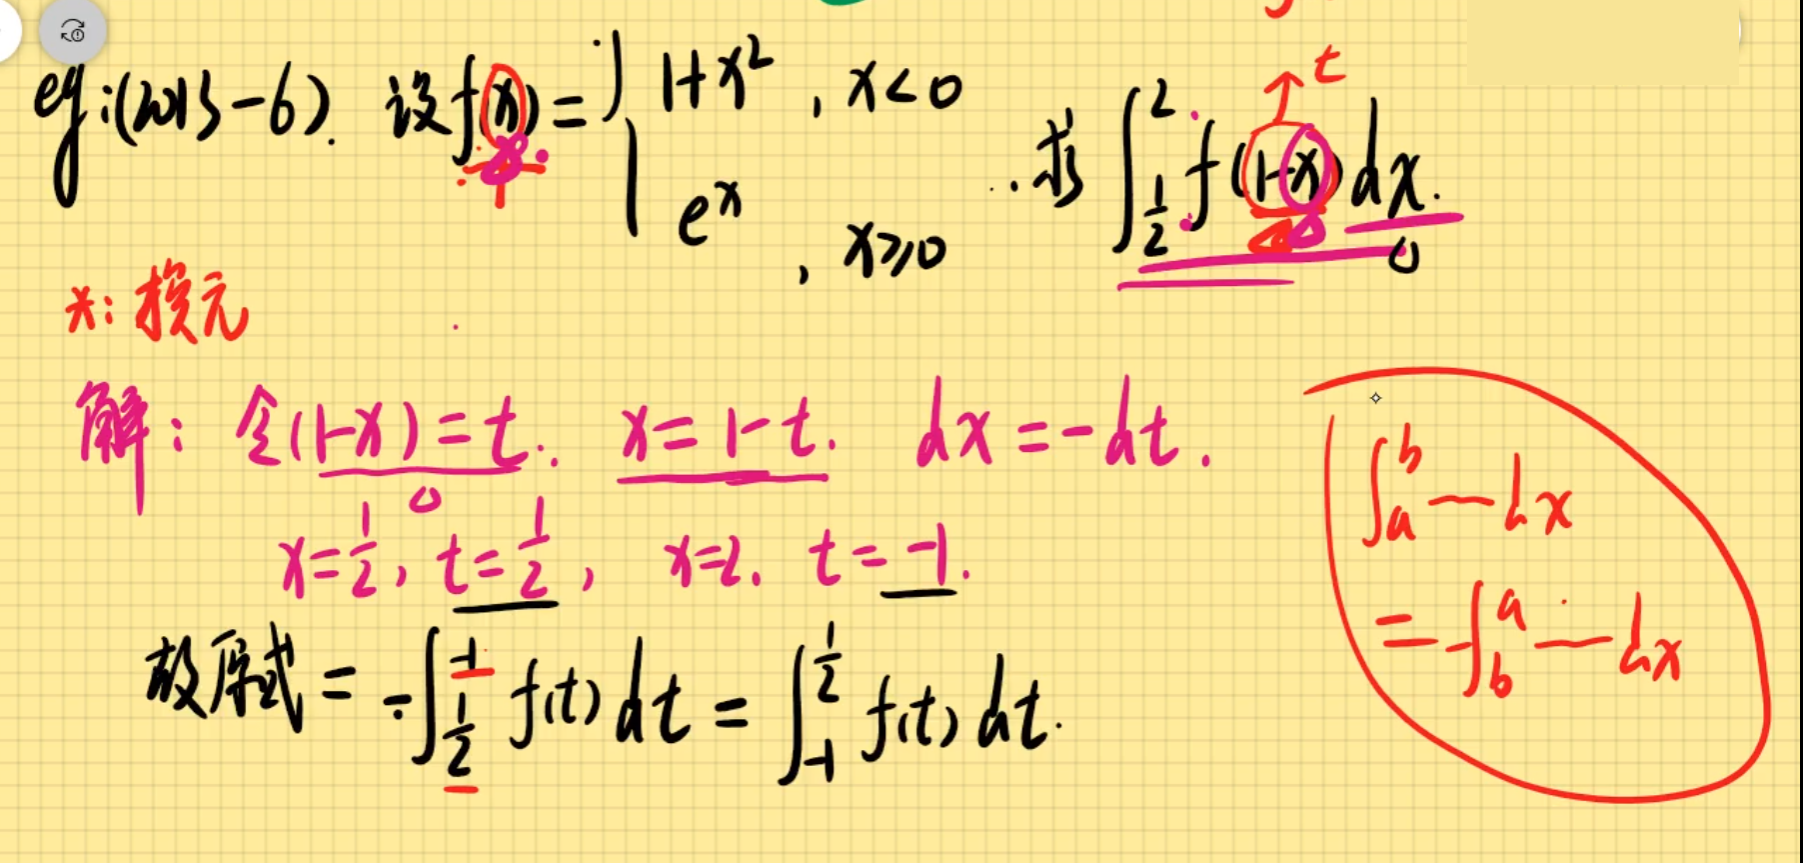 eg:(2013-6). 设f(x)= { 1+x², x<0
eˣ, x≥0
. 求 ∫_{1/2}^{2} f(1-x)dx.
t
*: 换元
解: 令(1-x)=t. x=1-t. dx=-dt.
x=1/2, t=1/2, x=2. t=-1.
故原式 = -∫_{1/2}^{-1} f(t)dt = ∫_{-1}^{1/2} f(t)dt.
∫_{a}^{b} — dx
= -∫_{b}^{a} — dx